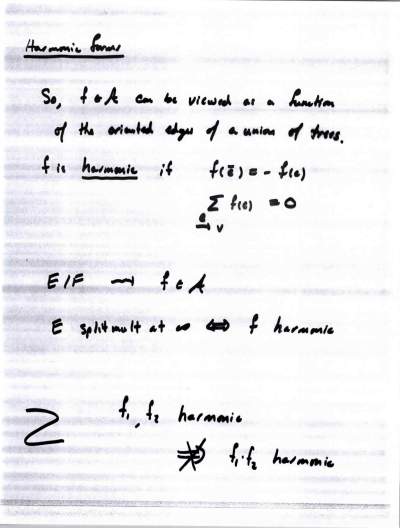 Harmonic forms
So, f ∈ A can be viewed as a function
of the oriented edges of a union of trees.
f is harmonic if f(ē) = - f(e)
Σ f(e) = 0
e → v
E/F → f ∈ A
E split mult at ∞ ⇔ f harmonic
f₁, f₂ harmonic
⇏ f₁·f₂ harmonic